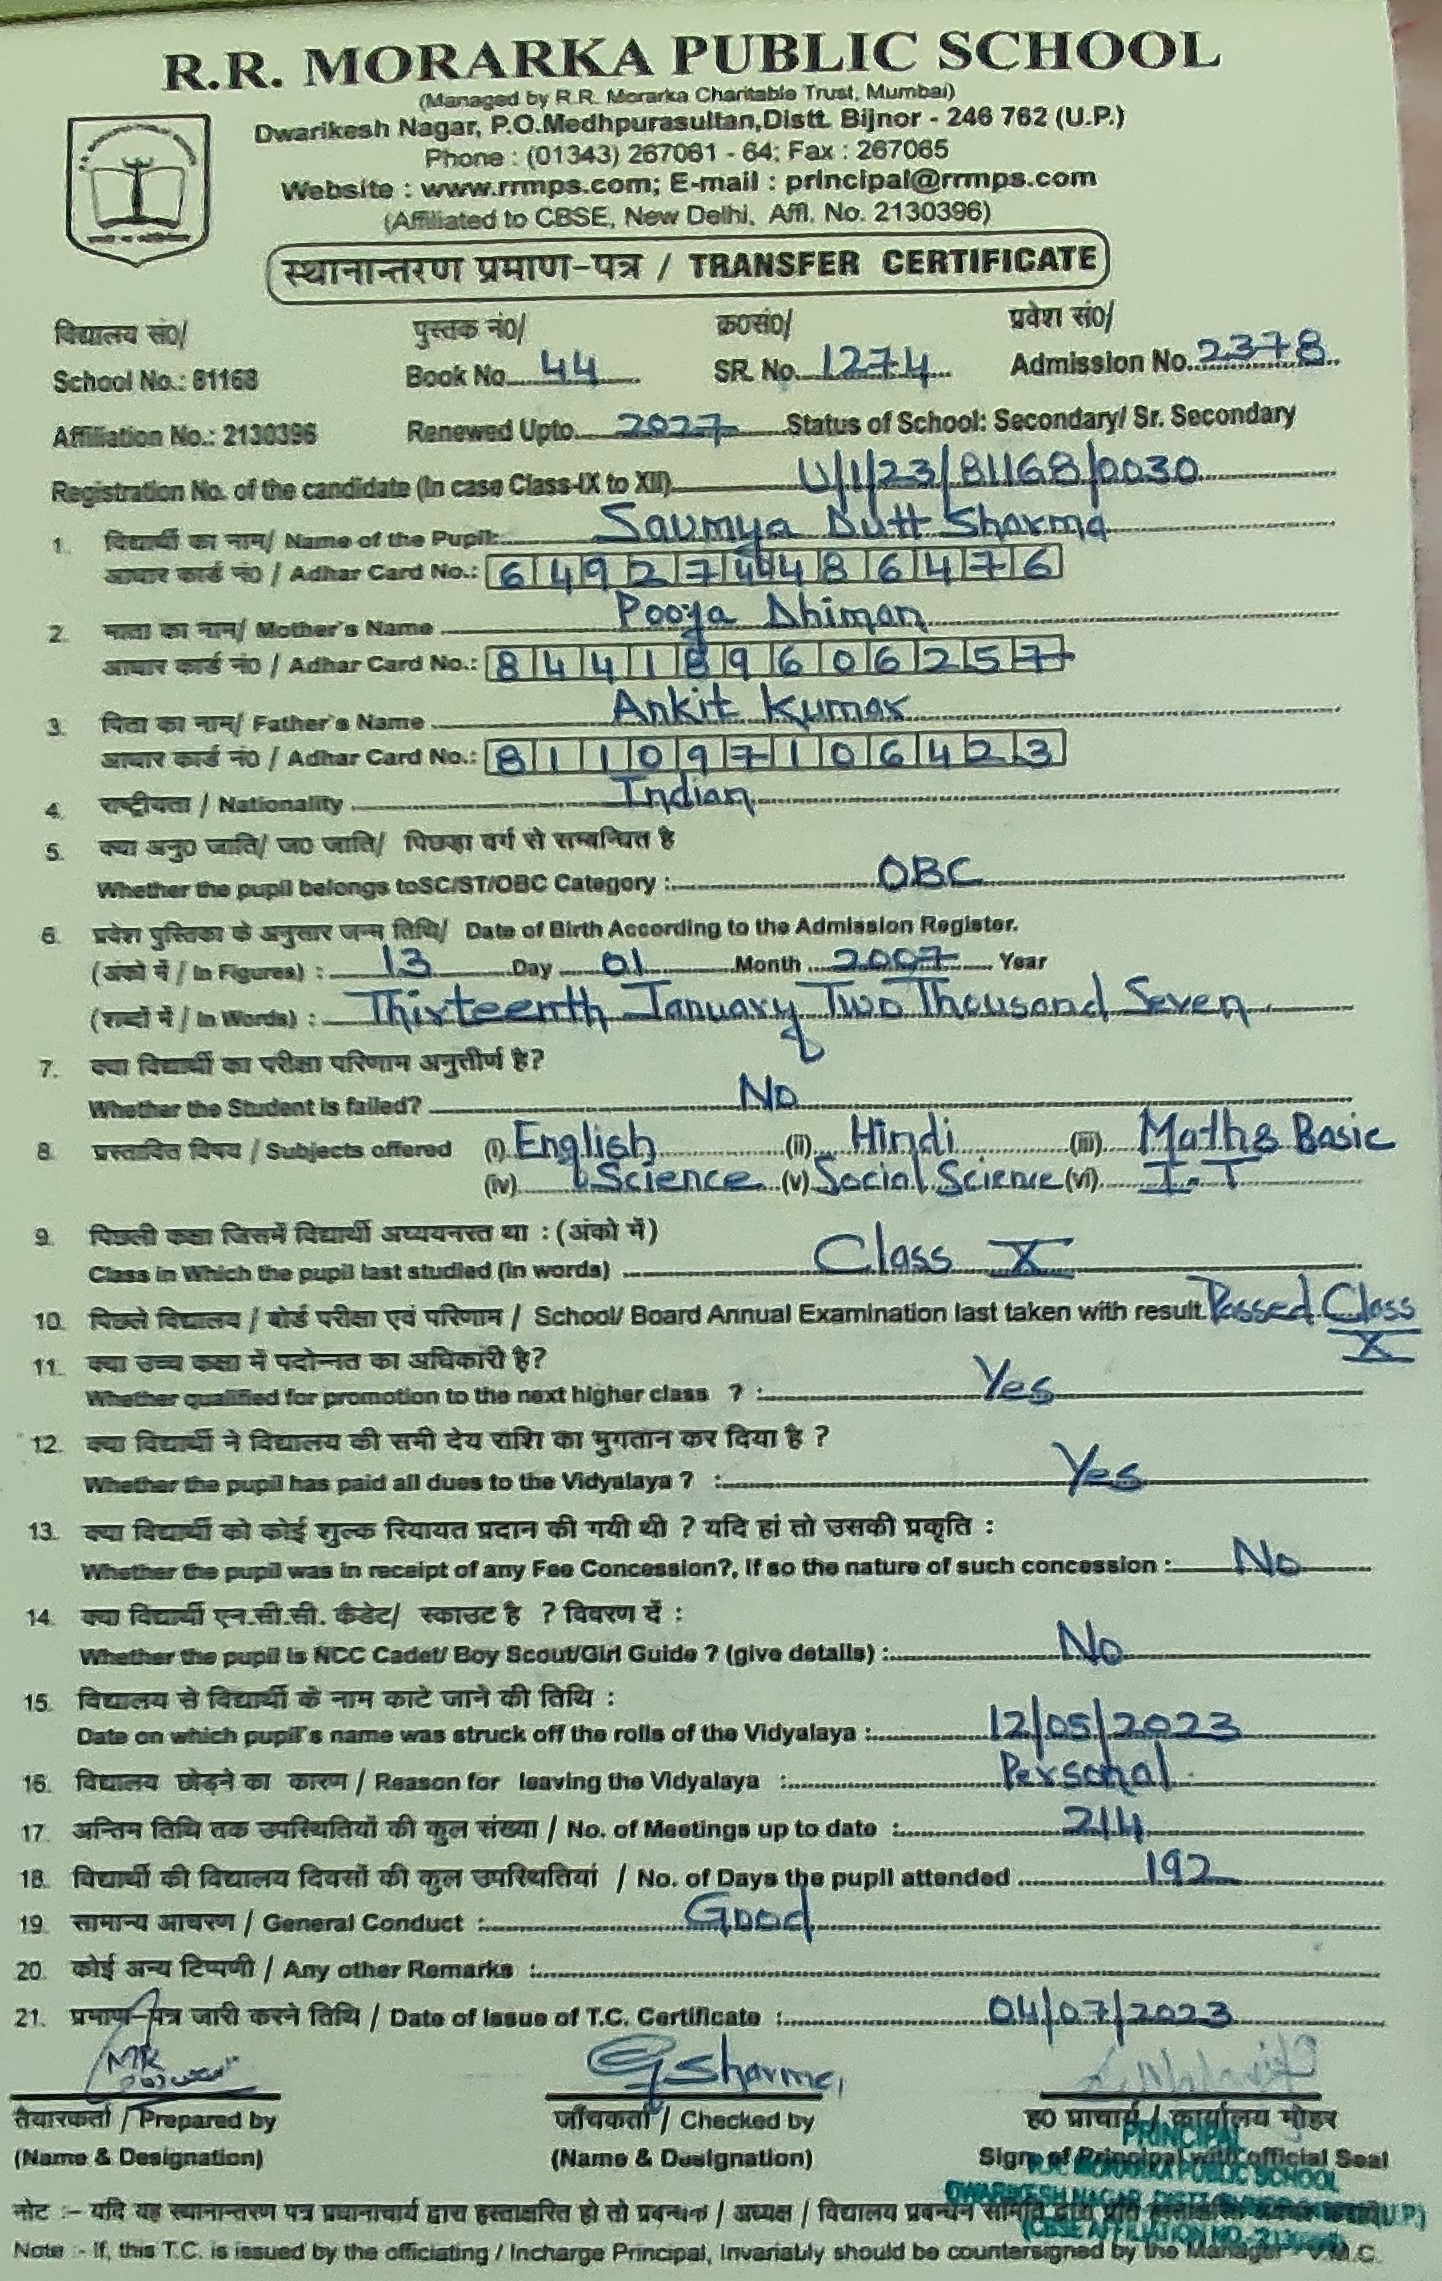 R.R. MORARKA PUBLIC SCHOOL
(Managed by R.R. Morarka Charitable Trust, Mumbai)
Dwarikesh Nagar, P.O.Medhpurasultan,Distt. Bijnor - 246 762 (U.P.)
Phone : (01343) 267061 - 64; Fax : 267065
Website : www.rrmps.com; E-mail : principal@rrmps.com
(Affiliated to CBSE, New Delhi, Affl. No. 2130396)
स्थानान्तरण प्रमाण-पत्र / TRANSFER CERTIFICATE
विद्यालय सं0/ पुस्तक नं0/ क्र0सं0/ प्रवेश सं0/
School No.: 81168 Book No. 44 SR. No. 1274 Admission No. 2378
Affiliation No.: 2130396 Renewed Upto 2027 Status of School: Secondary/ Sr. Secondary
Registration No. of the candidate (In case Class-IX to XII) U/1/23/81168/0030
1. विद्यार्थी का नाम/ Name of the Pupil: Saumya Dutt Sharma
आधार कार्ड नं0 / Adhar Card No.: 6 4 9 2 7 4 4 8 6 4 7 6
2. माता का नाम/ Mother's Name Pooja Dhiman
आधार कार्ड नं0 / Adhar Card No.: 8 4 4 1 8 9 6 0 6 2 5 7
3. पिता का नाम/ Father's Name Ankit Kumar
आधार कार्ड नं0 / Adhar Card No.: 8 1 1 0 9 7 1 0 6 4 2 3
4. राष्ट्रीयता / Nationality Indian
5. क्या अनु0 जाति/ ज0 जाति/ पिछड़ा वर्ग से सम्बन्धित है
Whether the pupil belongs toSC/ST/OBC Category : OBC
6. प्रवेश पुस्तिका के अनुसार जन्म तिथि/ Date of Birth According to the Admission Register.
(अंको में / In Figures) : 13 Day 01 Month 2007 Year
(शब्दों में / In Words) : Thirteenth January Two Thousand Seven
7. क्या विद्यार्थी का परीक्षा परिणाम अनुत्तीर्ण है?
Whether the Student is failed? No
8. प्रस्तावित विषय / Subjects offered (i) English (ii) Hindi (iii) Maths Basic
(iv) Science (v) Social Science (vi) I.T
9. पिछली कक्षा जिसमें विद्यार्थी अध्ययनरत था : (अंको में)
Class in Which the pupil last studied (in words) Class X
10. पिछले विद्यालय / बोर्ड परीक्षा एवं परिणाम / School/ Board Annual Examination last taken with result Passed Class
X
11. क्या उच्च कक्षा में पदोन्नत का अधिकारी है?
Whether qualified for promotion to the next higher class ? : Yes
12. क्या विद्यार्थी ने विद्यालय की सभी देय राशि का भुगतान कर दिया है ?
Whether the pupil has paid all dues to the Vidyalaya ? : Yes
13. क्या विद्यार्थी को कोई शुल्क रियायत प्रदान की गयी थी ? यदि हां तो उसकी प्रकृति :
Whether the pupil was in receipt of any Fee Concession?, If so the nature of such concession : No
14. क्या विद्यार्थी एन.सी.सी. कैडेट/ स्काउट है ? विवरण दें :
Whether the pupil is NCC Cadet/ Boy Scout/Girl Guide ? (give details) : No
15. विद्यालय से विद्यार्थी के नाम काटे जाने की तिथि :
Date on which pupil's name was struck off the rolls of the Vidyalaya : 12/05/2023
16. विद्यालय छोड़ने का कारण / Reason for leaving the Vidyalaya : Personal
17. अन्तिम तिथि तक उपस्थितियों की कुल संख्या / No. of Meetings up to date : 214
18. विद्यार्थी की विद्यालय दिवसों की कुल उपस्थितियां / No. of Days the pupil attended 192
19. सामान्य आचरण / General Conduct : Good
20. कोई अन्य टिप्पणी / Any other Remarks :
21. प्रमाण-पत्र जारी करने तिथि / Date of Issue of T.C. Certificate : 04/07/2023
MK G Sharma
तैयारकर्ता / Prepared by जाँचकर्ता / Checked by ह0 प्राचार्य / कार्यालय मोहर
(Name & Designation) (Name & Designation) Sign of Principal with official Seal
PRINCIPAL
R.R. MORARKA PUBLIC SCHOOL
DWARIKESH NAGAR, DISTT. (U.P.)
(CBSE AFFILIATION NO.-2130396)
नोट :- यदि यह स्थानान्तरण पत्र प्रधानाचार्य द्वारा हस्ताक्षरित हो तो प्रबन्धक / अध्यक्ष / विद्यालय प्रबन्धन समिति द्वारा प्रति हस्ताक्षरित
Note :- If, this T.C. is issued by the officiating / Incharge Principal, Invariably should be countersigned by the Manager V.M.C.